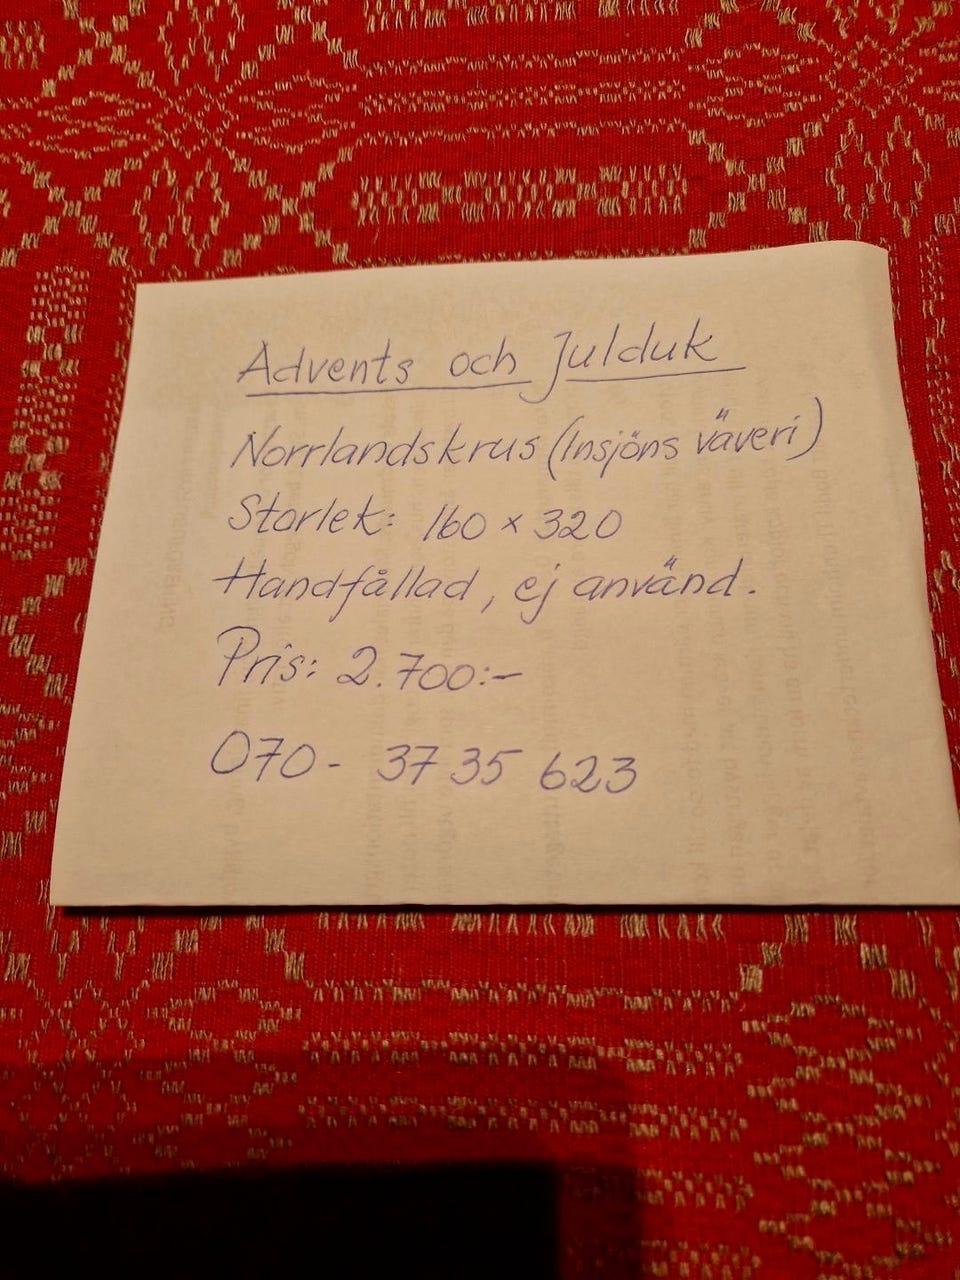 Advents och Julduk
Norrlandskrus (Insjöns väveri)
Storlek: 160 x 320
Handfållad, ej använd.
Pris: 2.700:-
070- 37 35 623